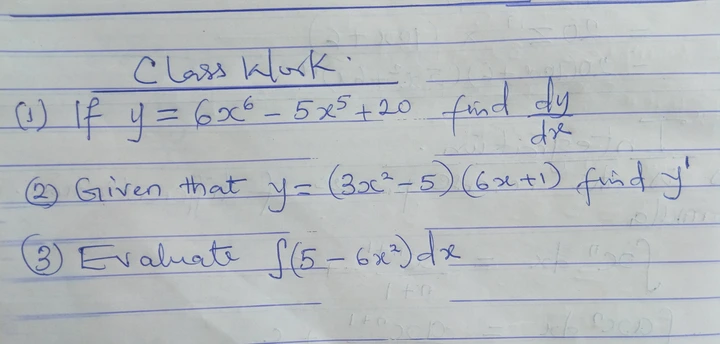 Class Work.
(1) If y = 6x⁶ - 5x⁵ + 20 find dy/dx
(2) Given that y = (3x² - 5)(6x + 1) find y'
(3) Evaluate ∫(5 - 6x²)dx